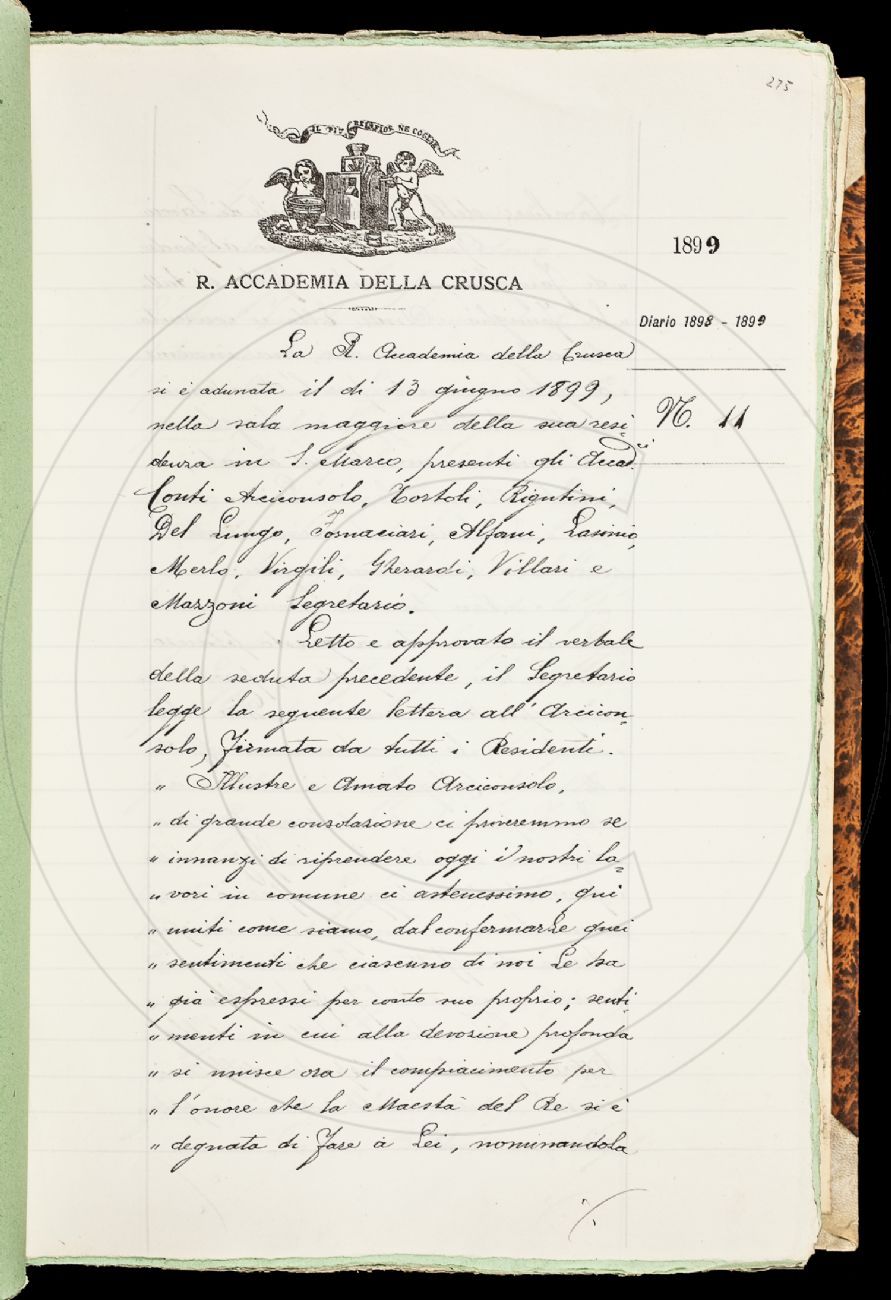 275
IL PIÙ BEL FIOR NE COGLIE
R. ACCADEMIA DELLA CRUSCA
1899
Diario 1898 - 1899
N. 11
La R. Accademia della Crusca
si è adunata il dì 13 giugno 1899,
nella sala maggiore della sua resi-
denza in S. Marco, presenti gli Accad.ci
Conti Arciconsolo, Tortoli, Rigutini,
Del Lungo, Fornaciari, Alfani, Lasinio,
Merlo, Virgili, Gherardi, Villari e
Mazzoni Segretario.
Letto e approvato il verbale
della seduta precedente, il Segretario
legge la seguente lettera all'Arcicon-
solo, firmata da tutti i Residenti.
" Illustre e Amato Arciconsolo,
" di grande consolazione ci priveremmo se
" innanzi di riprendere oggi i nostri la=
" vori in comune ci astenessimo, qui
" uniti come siamo, dal confermarLe quei
" sentimenti che ciascuno di noi Le ha
" già espressi per conto suo proprio; senti-
" menti in cui alla devozione profonda
" si unisce ora il compiacimento per
" l'onore che la Maestà del Re si è
" degnata di fare a Lei, nominandola
./.